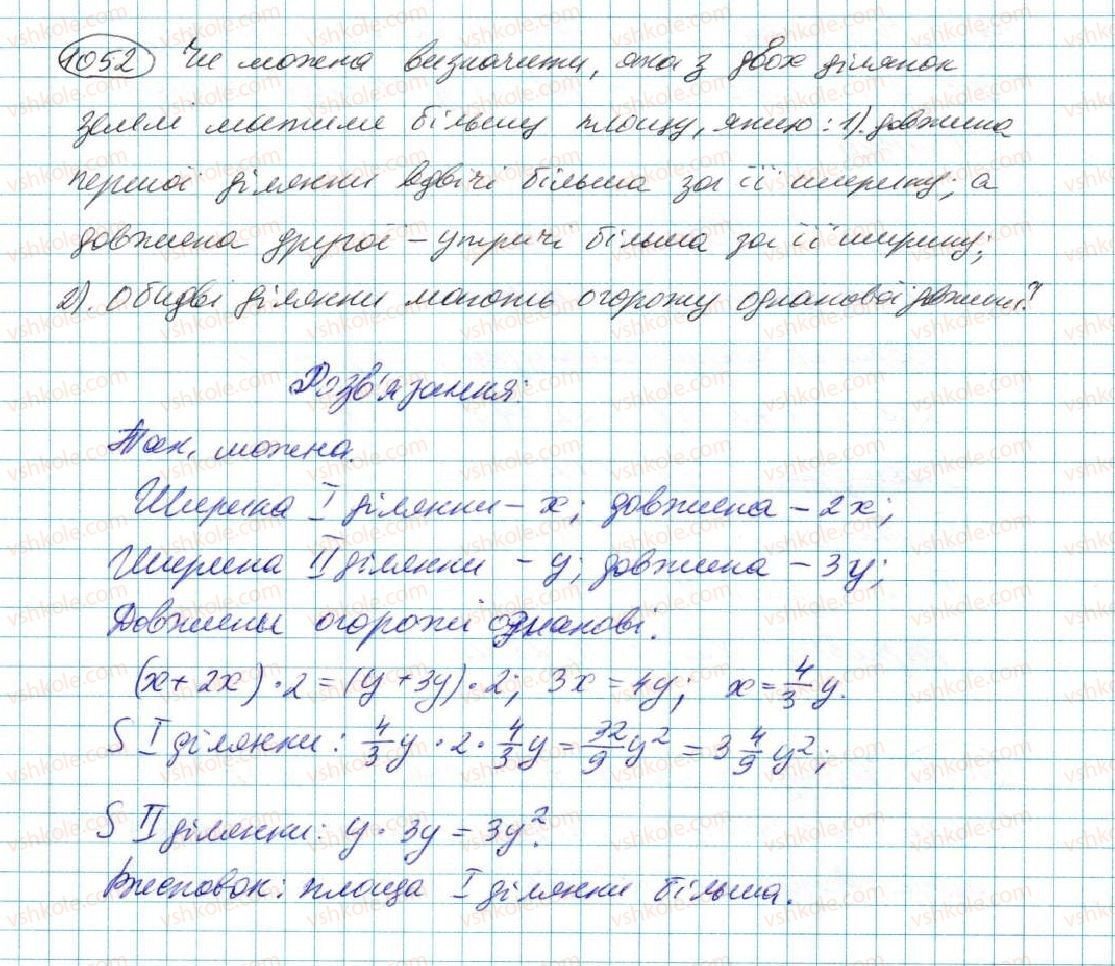 1052 Чи можна визначити, яка з двох ділянок
землі матиме більшу площу, якщо: 1). довжина
першої ділянки вдвічі більша за її ширину; а
довжина другої – утричі більша за її ширину;
2). Обидві ділянки мають огорожу однакової довжини?
Розв'язання:
Так, можна.
Ширина I ділянки – x; довжина – 2x;
Ширина II ділянки – y; довжина – 3y;
Довжины огорожі однакові.
(x + 2x) · 2 = (y + 3y) · 2; 3x = 4y; x = 4/3 y.
S I ділянки: 4/3 y · 2 · 4/3 y = 32/9 y² = 3 4/9 y²;
S II ділянки: y · 3y = 3y².
Висновок: площа I ділянки більша.